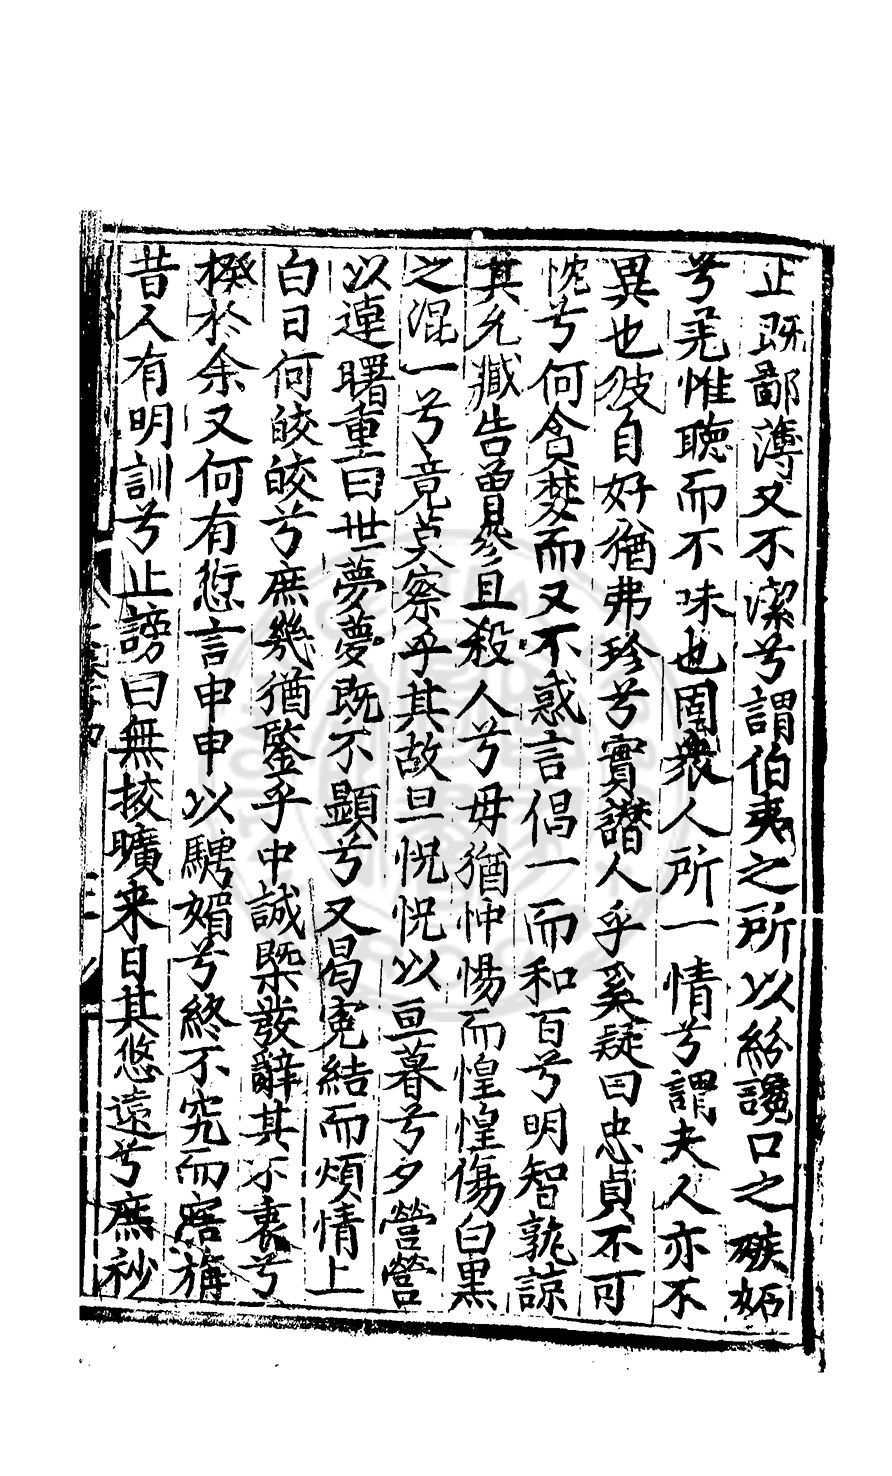 止既鄙薄又不潔兮謂伯夷之所以給讒口之嫉妬
兮羌惟聽而不味也固衆人所一情兮謂夫人亦不
異也彼自好猶弗珍兮實譖人乎奚疑曰忠貞不可
忱兮何貪婪而又不惑言倡一而和百兮明智孰諒
其允臧告曽參且殺人兮毋猶忡惕而惶惶傷白黒
之混一兮竟莫察乎其故旦怳怳以亘暮兮夕營營
以連曙重曰世夢夢既不顯兮又曷寃結而煩情上
白日何皎皎兮庶幾猶鑒乎中誠槩發辭其不衷兮
揆於余又何有愆言申申以騁媚兮終不究而寤旃
昔人有明訓兮止謗曰無挍曠来日其悠遠兮庶秒